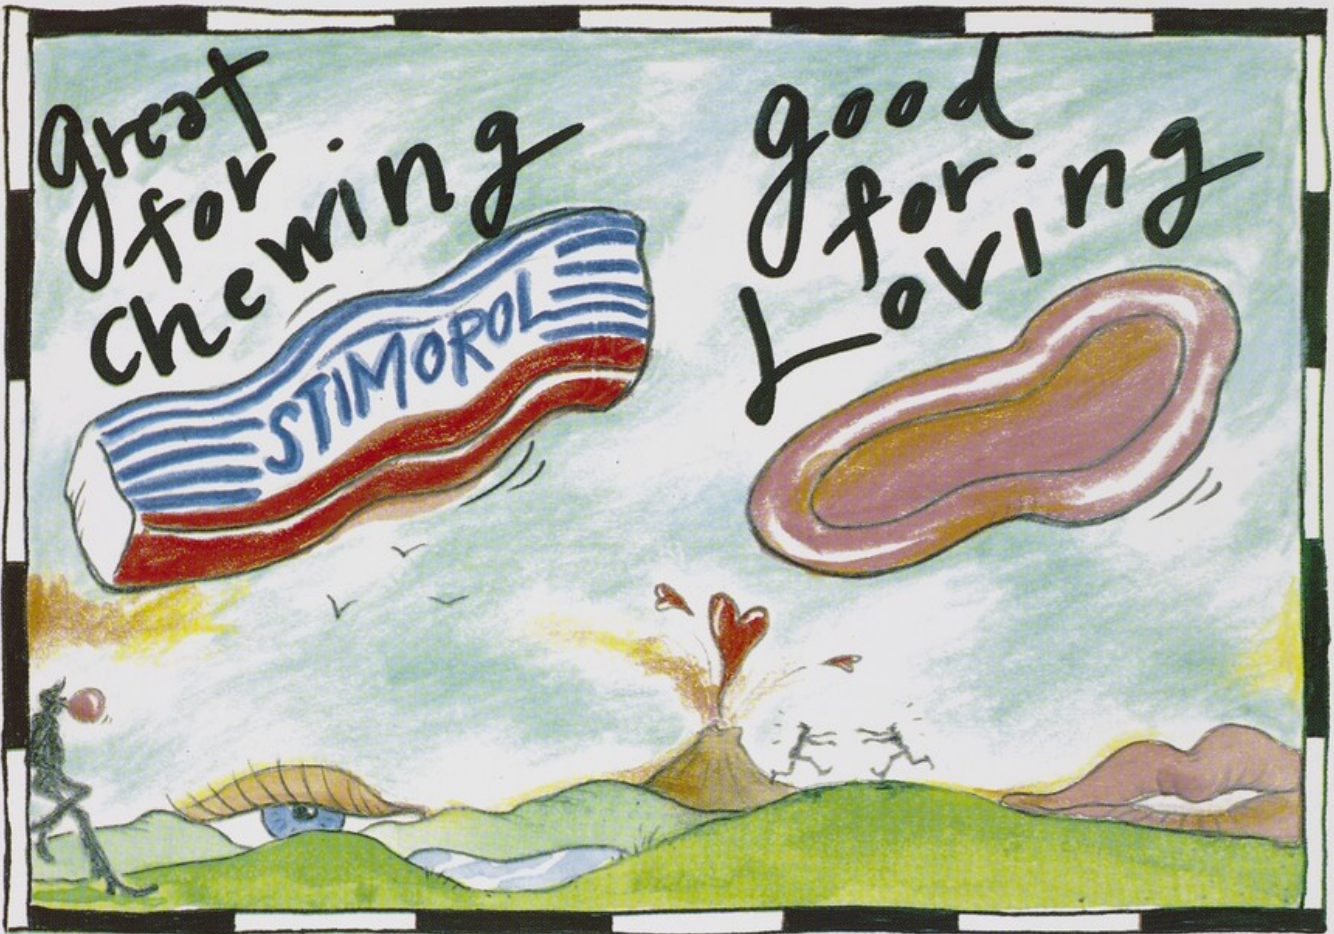 great
for
chewing
STIMOROL
good
for
Loving